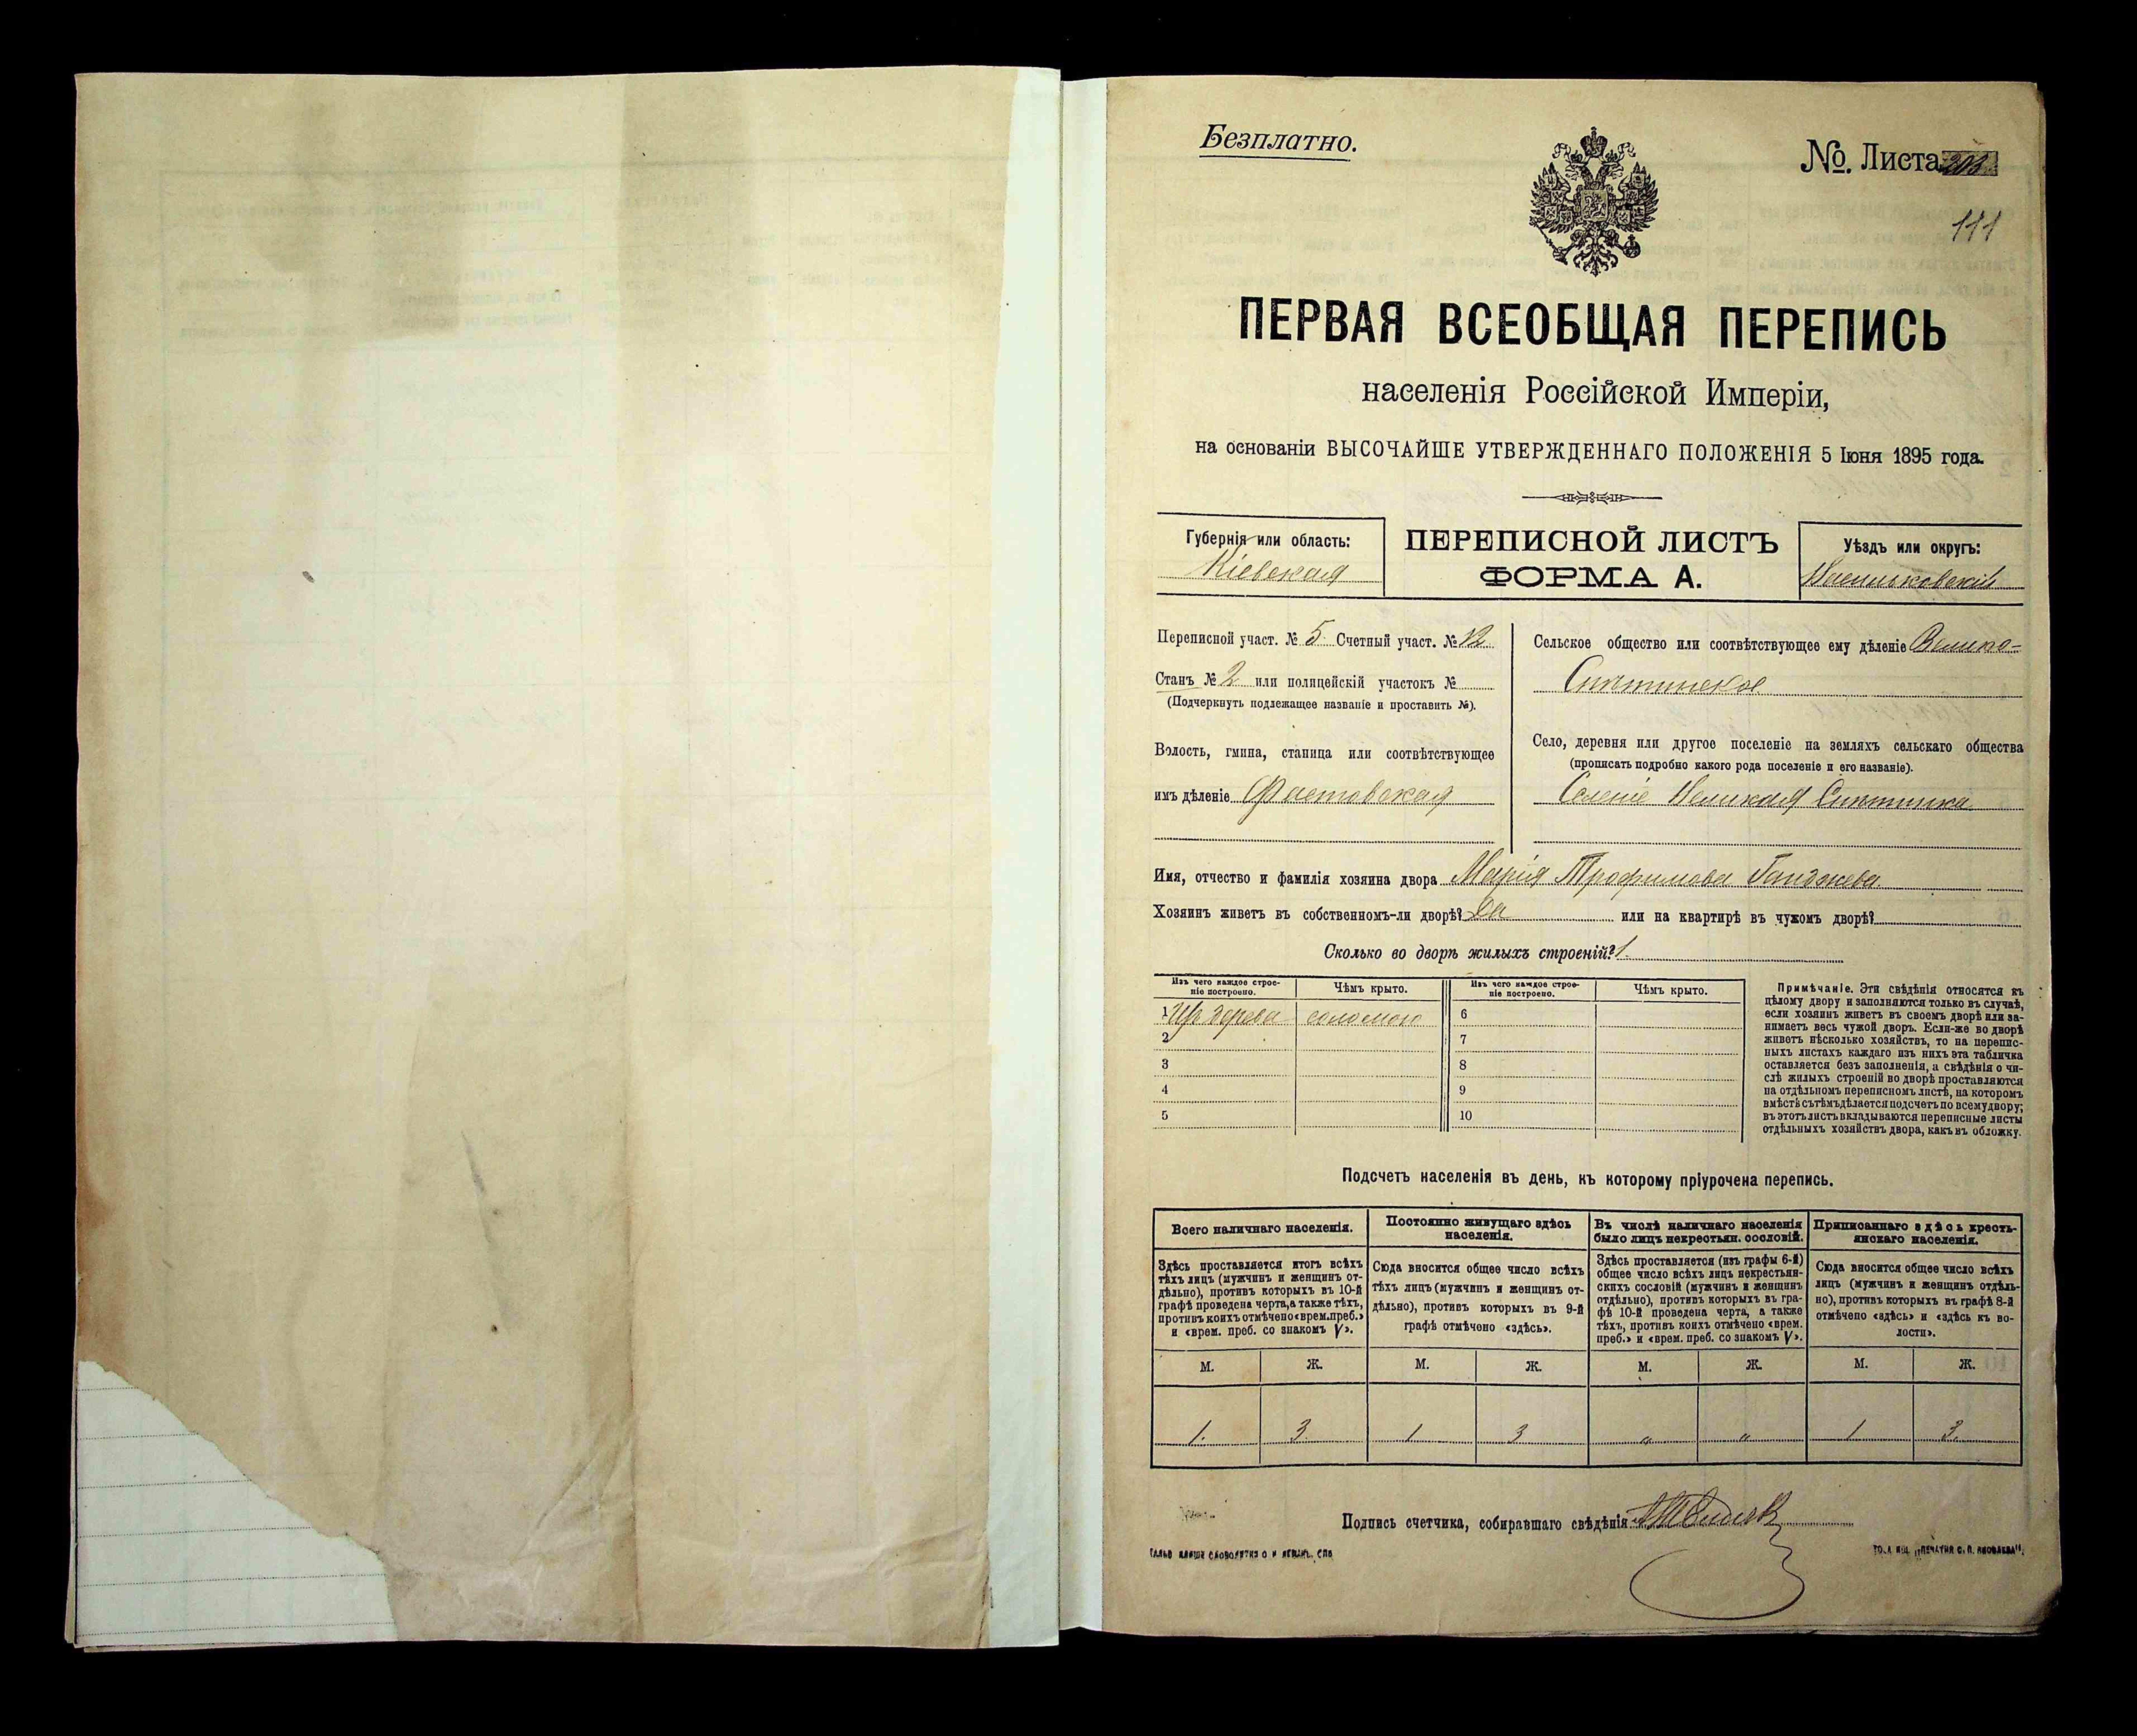 Безплатно.
№. Листа
111
ПЕРВАЯ ВСЕОБЩАЯ ПЕРЕПИСЬ
населенія Россійской Имперіи,
на основаніи ВЫСОЧАЙШЕ УТВЕРЖДЕННАГО ПОЛОЖЕНІЯ 5 Іюня 1895 года.
Губернія или область:
Кіевская
ПЕРЕПИСНОЙ ЛИСТЪ
ФОРМА А.
Уѣздъ или округъ:
Васильковскій
Переписной участ. № 5. Счетный участ. № 12
Станъ № 2 или полицейскій участокъ №
(Подчеркнуть подлежащее названіе и проставить №).
Волость, гмина, станица или соотвѣтствующее
имъ дѣленіе Фастовская
Сельское общество или соотвѣтствующее ему дѣленіе Велико-
Снитинское
Село, деревня или другое поселеніе на земляхъ сельскаго общества
(прописать подробно какого рода поселеніе и его названіе).
Селеніе Великая Снитинка
Имя, отчество и фамилія хозяина двора Марія Трофимова
Хозяинъ живетъ въ собственномъ-ли дворѣ? Да или на квартирѣ въ чужомъ дворѣ?
Сколько во дворѣ жилыхъ строеній? 1.
Изъ чего каждое строе-
ніе построено.
Чѣмъ крыто.
Изъ чего каждое строе-
ніе построено.
Чѣмъ крыто.
1 Изъ дерева соломою 6
2 7
3 8
4 9
5 10
Примѣчаніе. Эти свѣдѣнія относятся къ
цѣлому двору и заполняются только въ случаѣ,
если хозяинъ живетъ въ своемъ дворѣ или за-
нимаетъ весь чужой дворъ. Если-же во дворѣ
живетъ нѣсколько хозяйствъ, то на перепис-
ныхъ листахъ каждаго изъ нихъ эта табличка
оставляется безъ заполненія, а свѣдѣнія о чи-
слѣ жилыхъ строеній во дворѣ проставляются
на отдѣльномъ переписномъ листѣ, на которомъ
вмѣстѣ съ тѣмъ дѣлается подсчетъ по всему двору;
въ этотъ листъ вкладываются переписные листы
отдѣльныхъ хозяйствъ двора, какъ въ обложку.
Подсчетъ населенія въ день, къ которому пріурочена перепись.
Всего наличнаго населенія.
Здѣсь проставляется итогъ всѣхъ
тѣхъ лицъ (мужчинъ и женщинъ от-
дѣльно), противъ которыхъ въ 10-й
графѣ проведена черта, а также тѣхъ,
противъ коихъ отмѣчено «врем. преб.»
и «врем. преб. со знакомъ V».
Постоянно живущаго здѣсь
населенія.
Сюда вносится общее число всѣхъ
тѣхъ лицъ (мужчинъ и женщинъ от-
дѣльно), противъ которыхъ въ 9-й
графѣ отмѣчено «здѣсь».
Въ числѣ наличнаго населенія
было лицъ некрестьян. сословій.
Здѣсь проставляется (изъ графы 6-й)
общее число всѣхъ лицъ некрестьян-
скихъ сословій (мужчинъ и женщинъ
отдѣльно), противъ которыхъ въ гра-
фѣ 10-й проведена черта, а также
тѣхъ, противъ коихъ отмѣчено «врем.
преб.» и «врем. преб. со знакомъ V».
Приписаннаго здѣсь кресть-
янскаго населенія.
Сюда вносится общее число всѣхъ
лицъ (мужчинъ и женщинъ отдѣль-
но), противъ которыхъ въ графѣ 8-й
отмѣчено «здѣсь» и «здѣсь къ во-
лости».
М. Ж. М. Ж. М. Ж. М. Ж.
1. 3 1 3 „ „ 1 3.
Подпись счетчика, собиравшаго свѣдѣнія